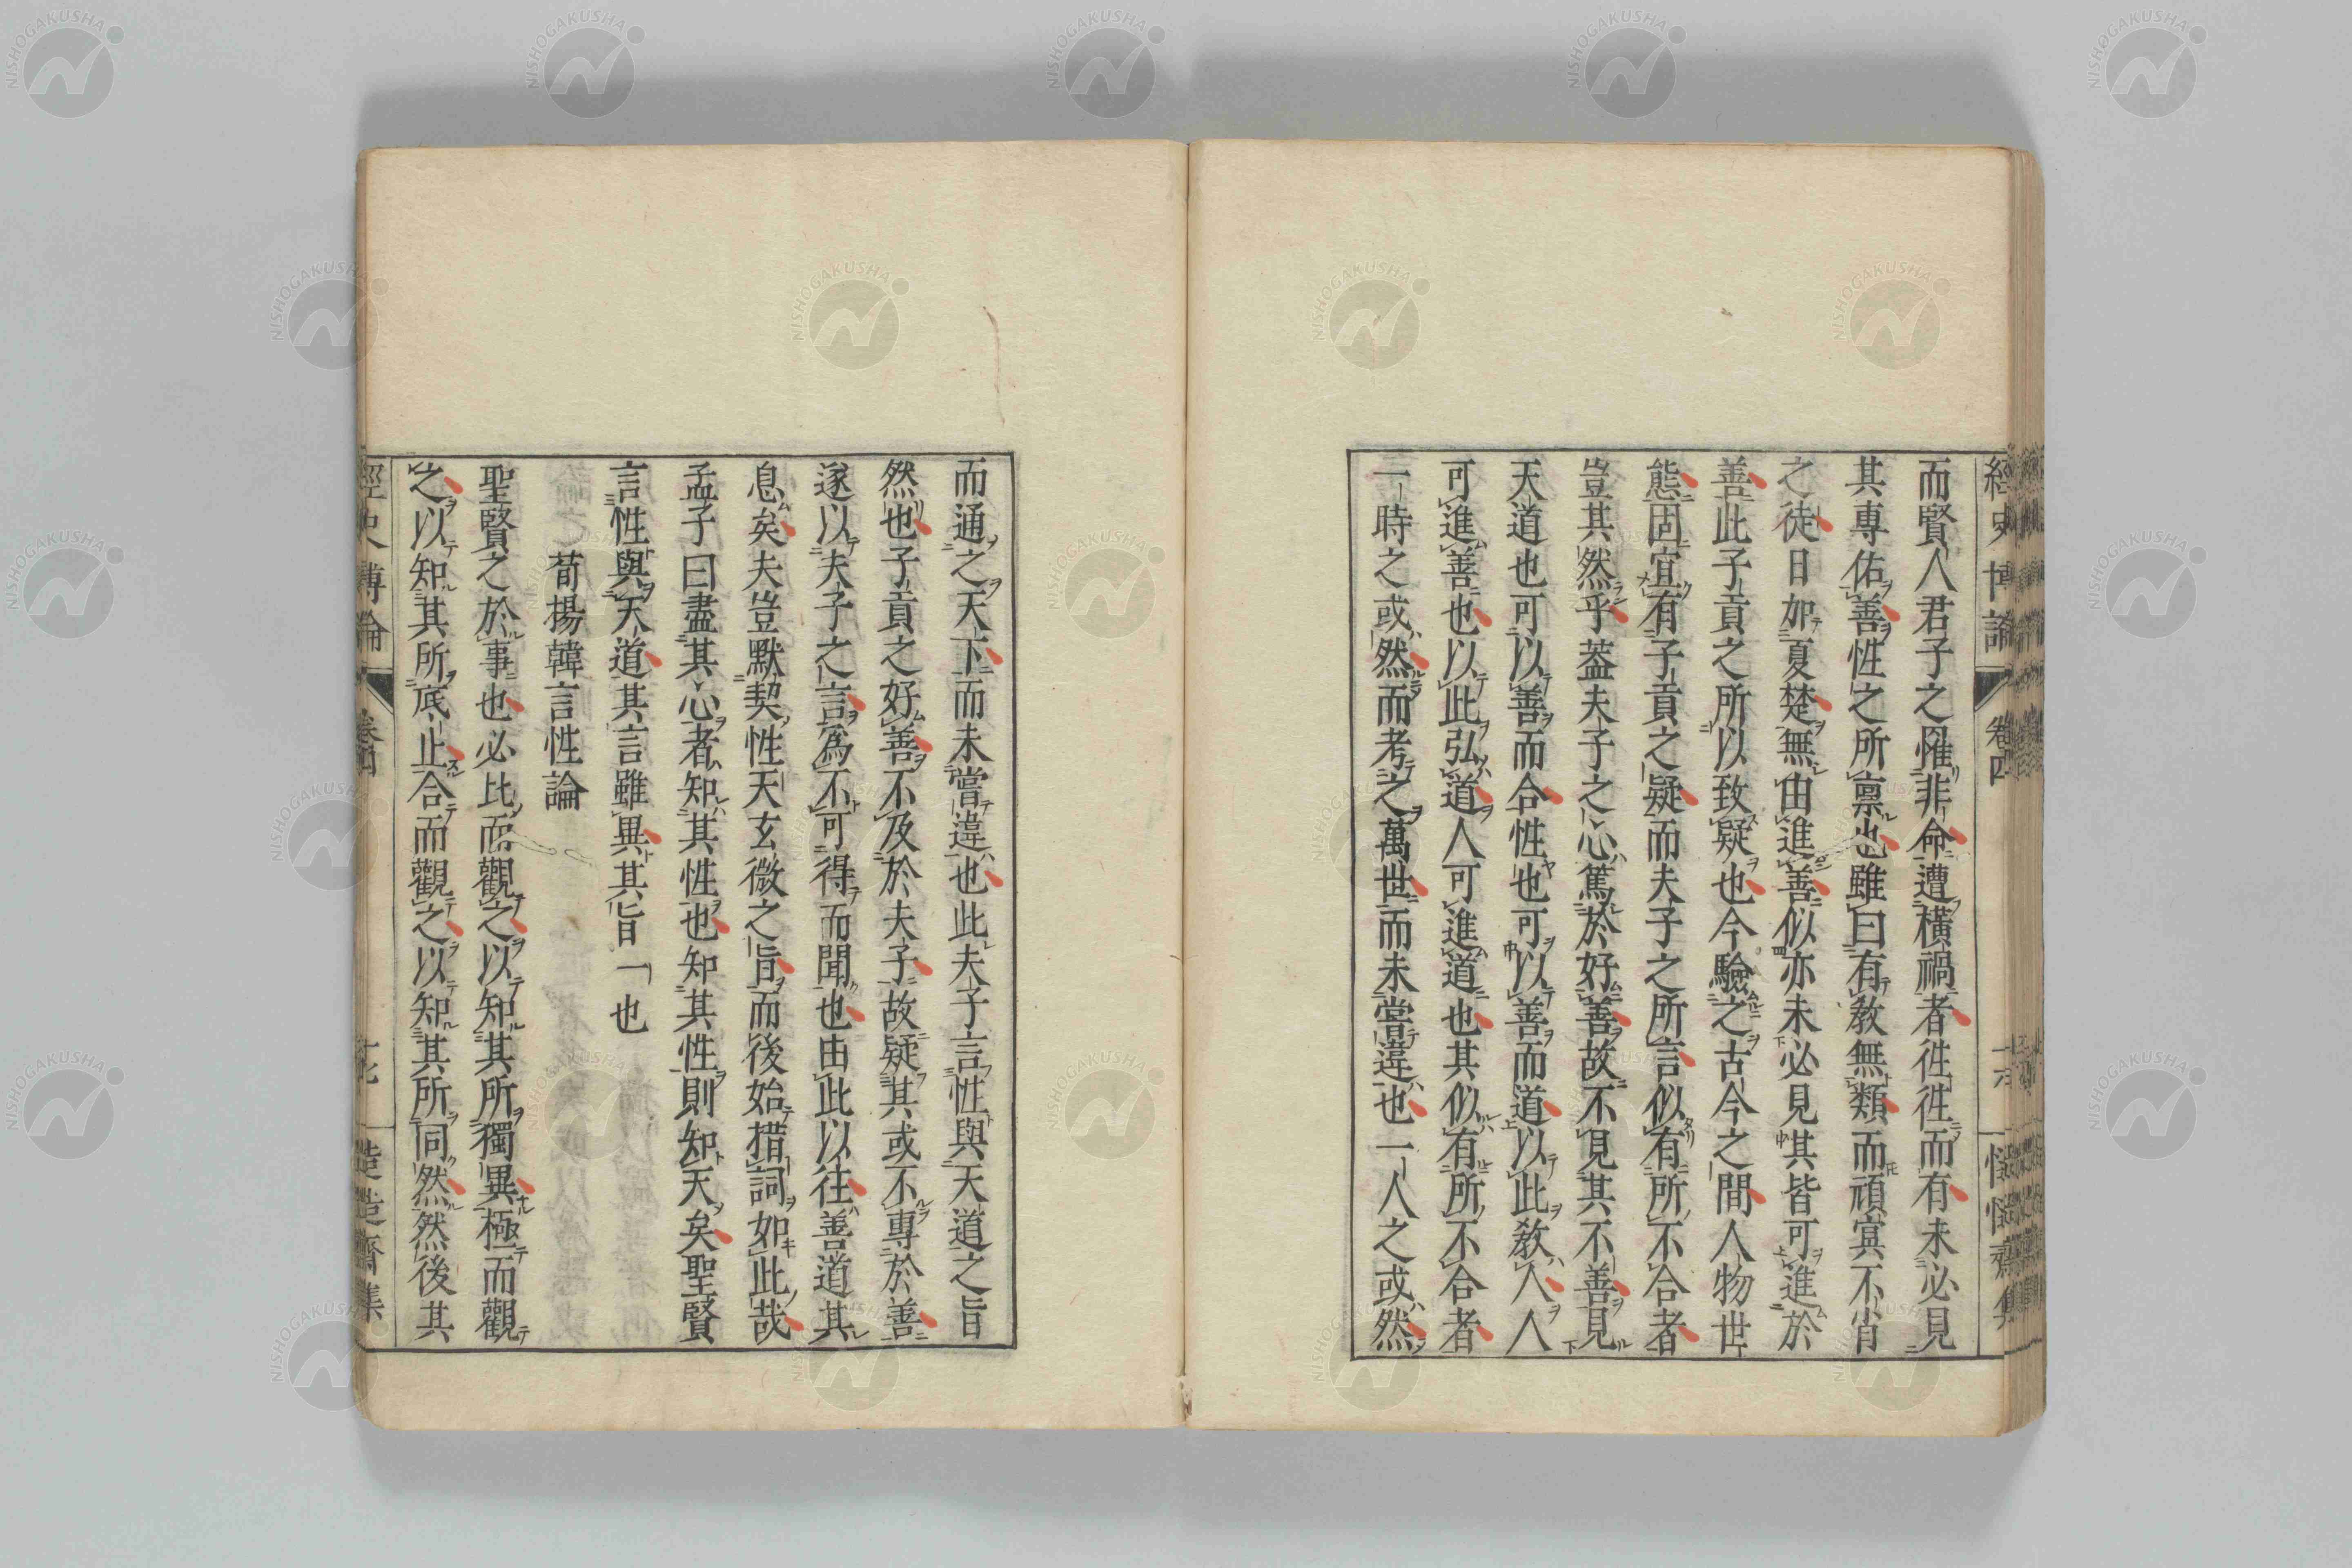 經史博論
卷四
十六
慥慥齋集
而賢人君子之罹非命遭橫禍者徃徃而有未必見
其專佑善性之所禀也雖曰有教無類而頑冥不肖
之徒日加夏楚無由進善似亦未必見其皆可進於
善此子貢之所以致疑也今驗之古今之間人物世
態固宜有子貢之疑而夫子之所言似有所不合者
豈其然乎葢夫子之心篤於好善故不見其不善見
天道也可以善而合性也可以善而道以此教人人
可進善也以此弘道人可進道也其似有所不合者
一時之或然而考之萬世而未嘗違也一人之或然
而通之天下而未嘗違也此夫子言性與天道之旨
然也子貢之好善不及於夫子故疑其或不專於善
遂以夫子之言為不可得而聞也由此以往善道其
息矣夫豈默契性天玄微之旨而後始措詞如此哉
孟子曰盡其心者知其性也知其性則知天矣聖賢
言性與天道其言雖異其旨一也
荀揚韓言性論
聖賢之於事也必比而觀之以知其所獨異極而觀
之以知其所底止合而觀之以知其所同然然後其
經史博論
卷四
慥慥齋集
NISHOGAKUSHA